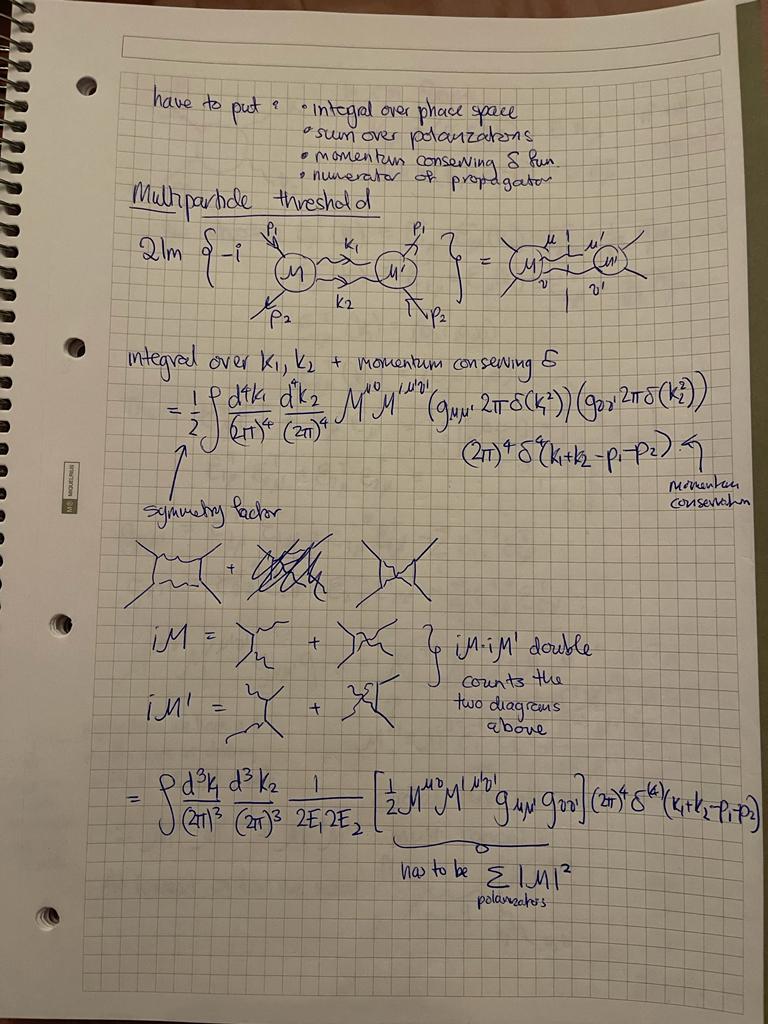 have to put : • integral over phace space
• sum over polarizations
• momentum conserving δ fun.
• numerator of propagator
Multiparticle threshold
2Im { -i p₁ M k₁ k₂ M' p₁ p₂ p₂ } = M μ μ' ν ν' M'
integral over k₁, k₂ + momentum conserving δ
= 1/2 ∫ d⁴k₁/(2π)⁴ d⁴k₂/(2π)⁴ M^{μν} M'^{μ'ν'} (g_{μμ'} 2πδ(k₁²)) (g_{νν'} 2πδ(k₂²))
(2π)⁴ δ⁴(k₁+k₂-p₁-p₂)
momentum
conservation
symmetry factor
+
iM = + } iM·iM' double
counts the
iM' = + two diagrams
above
= ∫ d³k₁/(2π)³ d³k₂/(2π)³ 1/(2E₁2E₂) [1/2 M^{μν} M'^{μ'ν'} g_{μμ'} g_{νν'}] (2π)⁴ δ^{(4)}(k₁+k₂-p₁-p₂)
has to be Σ |M|²
polarizators
MIQUELRIUS